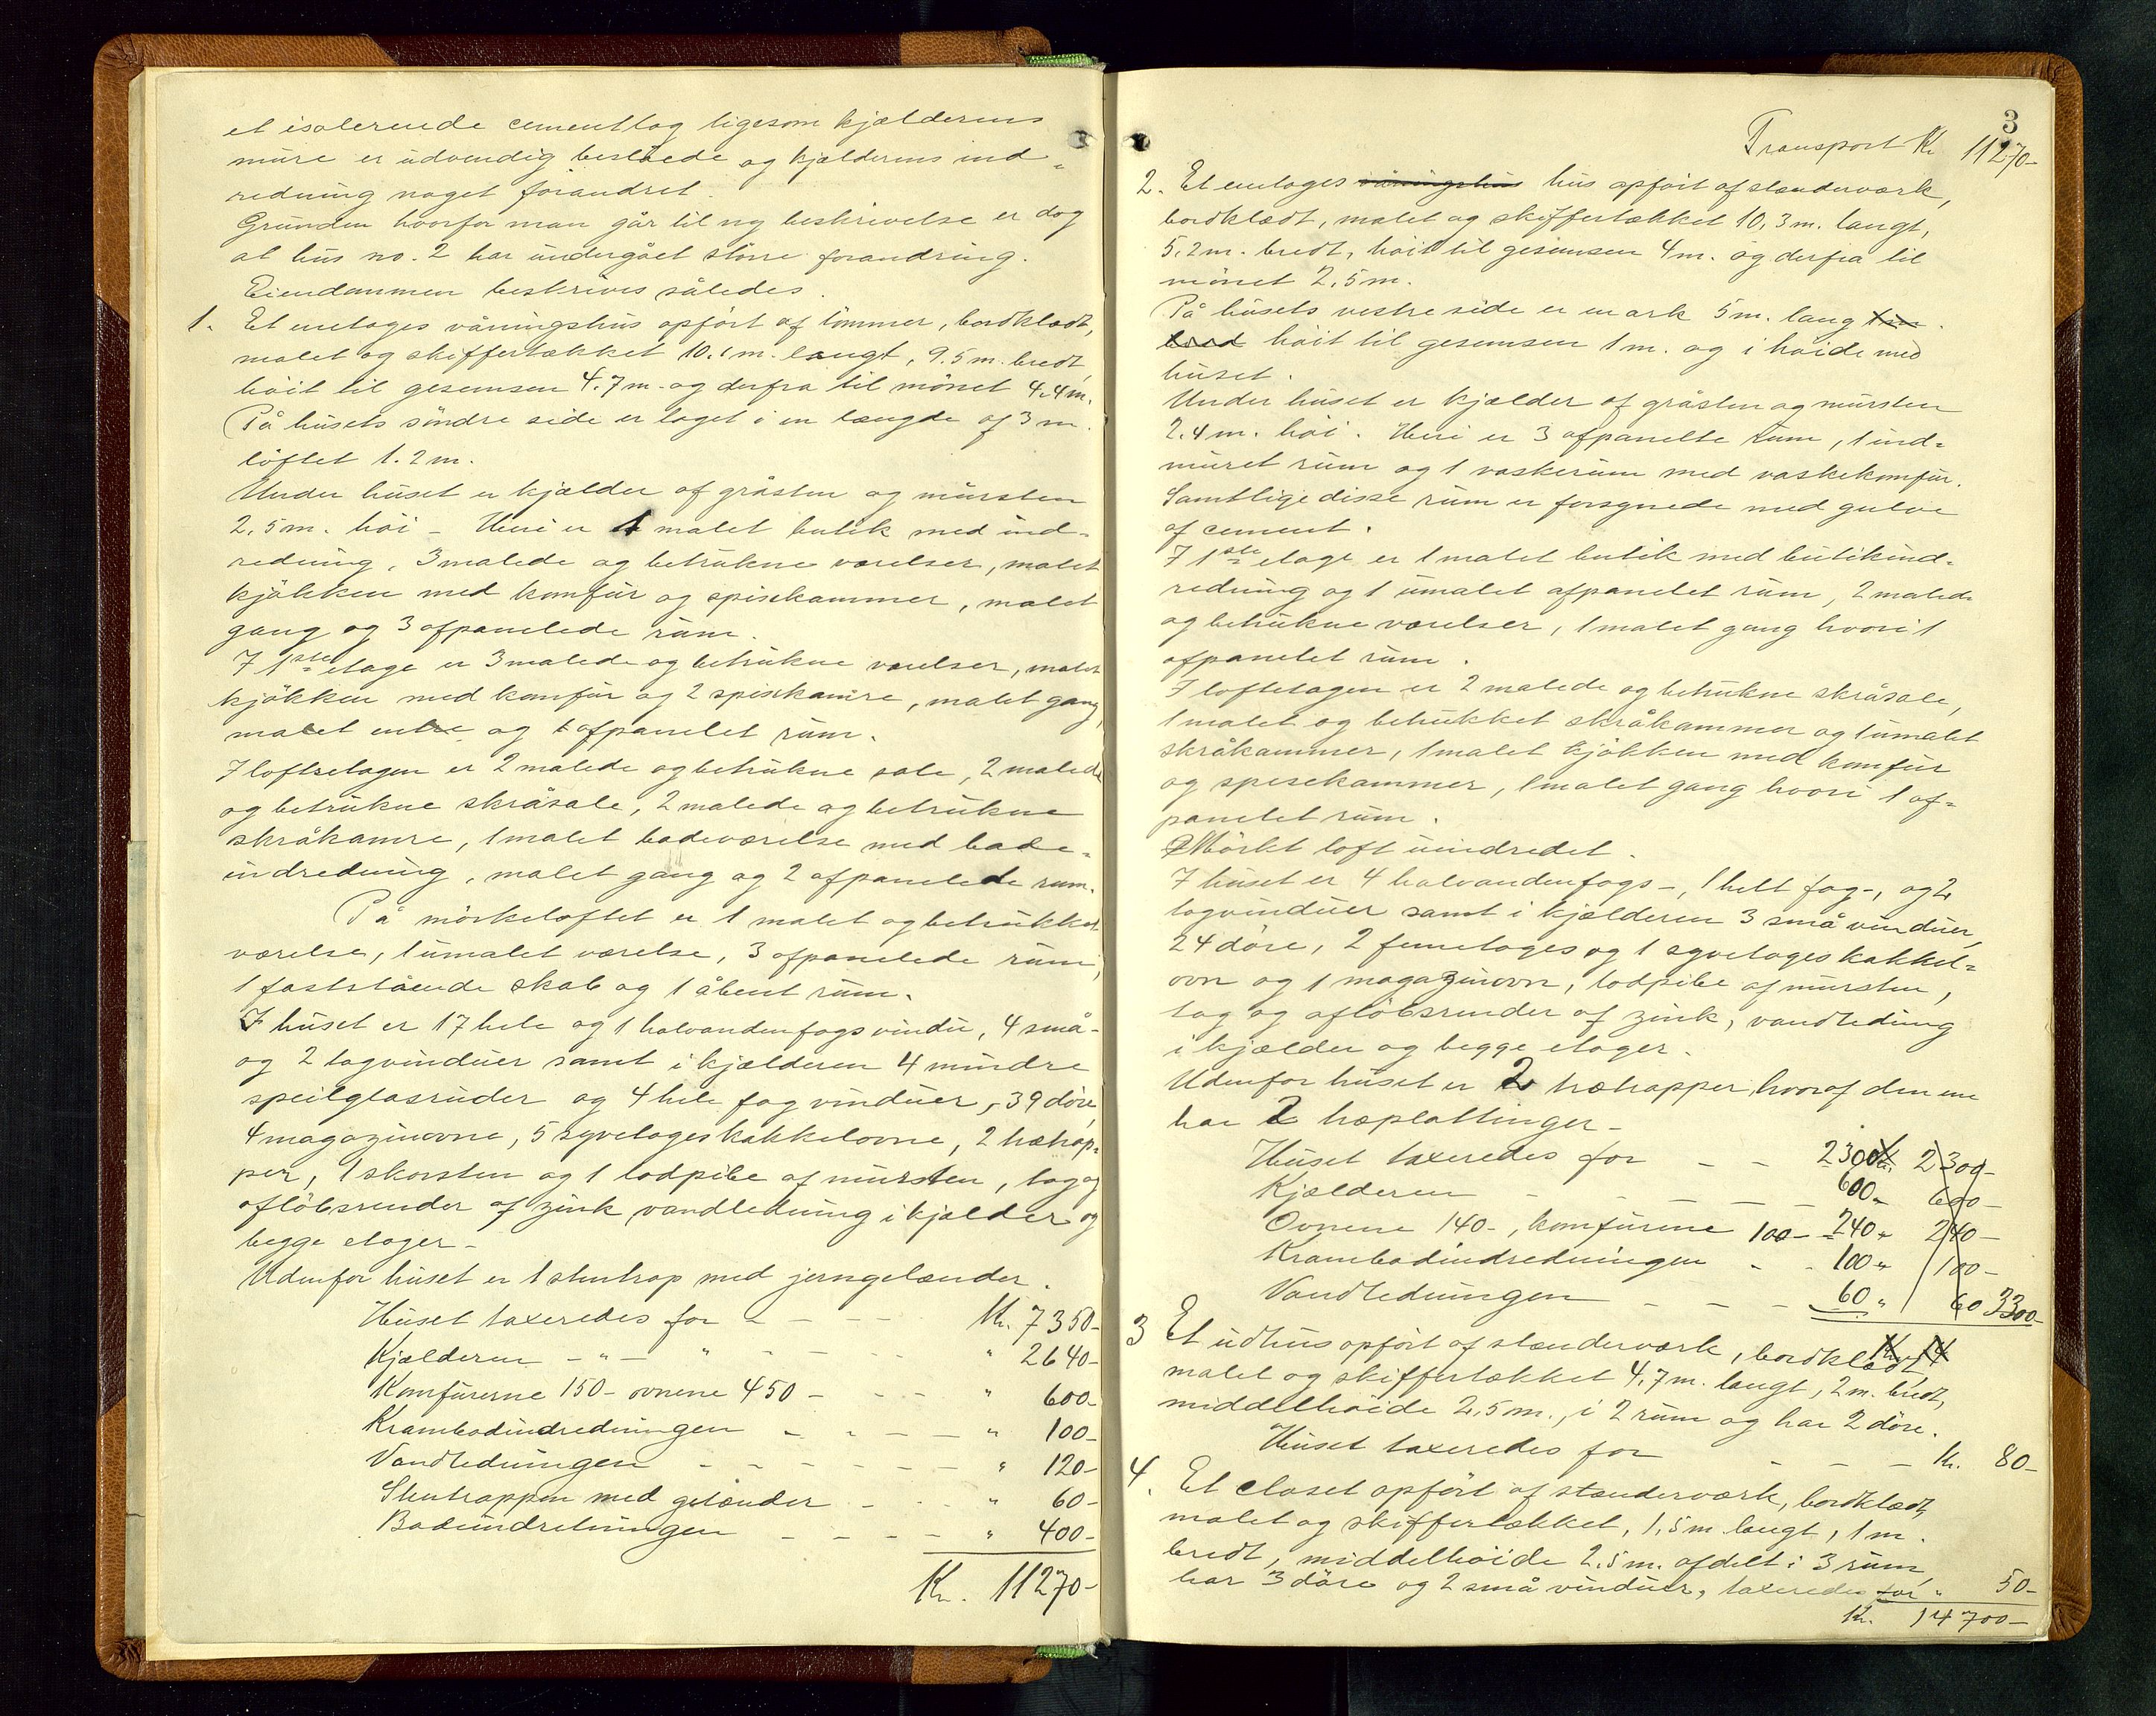 et isolerende cementlag ligesom kjælderens
mure er udvendig beslåede og kjælderens ind=
redning noget forandret.
Grunden hvorfor man går til ny beskrivelse er dog
at hus no. 2 har undergået större forandring.
Eiendommen beskrives således.
1. Et enetages våningshus opført af tömmer, bordklædt,
malet og skiffertækket 10.1 m. langt, 9.5 m. bredt,
höit til gesemsen 4.7 m. og derfra til mönet 4.4 m.
På husets söndre side er taget i en længde af 3 m.
löftet 1.2 m.
Under huset er kjælder af gråsten og mursten
2.5 m. höi - Heri er 1 malet butik med ind-
redning, 3 malede og betrukne værelser, malet
kjökken med komfur og spisekammer, malet
gang og 3 afpanelede rum.
I 1ste etage er 3 malede og betrukne værelser, malet
kjökken med komfur og 2 spisekamre, malet gang,
malet entre og 1 afpanelet rum.
I loftsetagen er 2 malede og betrukne sale, 2 malede
og betrukne skråsale, 2 malede og betrukne
skråkamre, 1 malet badeværelse med bade-
indredning, malet gang og 2 afpanelede rum.
På mörkeloftet er 1 malet og betrukket
værelse, 1 umalet værelse, 3 afpanelede rum,
1 faststående skab og 1 åbent rum.
I huset er 17 hele og 1 halvandenfags vindu, 4 små-
og 2 tagvinduer samt i kjælderen 4 mindre
speilglasruder og 4 hele fag vinduer, 39 döre,
4 magazinovne, 5 syvetages kakkelovne, 2 trætrap=
per, 1 skorsten og 1 lodpibe af mursten, tag og
aflöbsrender af zink vandledning i kjælder og
begge etager -
Udenfor huset er 1 stentrap med jerngelænder.
Huset taxeredes for - - - - Kr. 7350-
Kjælderen - " - " - - - " 2640-
Komfurerne 150- ovnene 450 - - - " 600-
Krambodindredningen - - - - " 100-
Vandledningen - - - - - - " 120-
Stentrappen med gelænder - - - " 60-
Badeindretningen - - - - " 400-
Kr. 11270-
3
Transport Kr. 11270-
2. Et enetages våningshus hus opfört af stænderværk,
bordklædt, malet og skiffertækket 10,3 m. langt,
5,2 m. bredt, höit til gesimsen 4 m. og derfra til
mönet 2,5 m.
På husets vestre side er en ark 5 m. lang
bred höit til gesemsen 1 m. og i höide med
huset.
Under huset er kjælder af gråsten og mursten
2.4 m. höi. Heri er 3 afpanelte rum, 1 ind=
muret rum og 1 vaskerum med vaskekomfur.
Samtlige disse rum er forsynede med gulve
af cement.
I 1ste etage er 1 malet butik med butikind-
redning og 1 umalet afpanelet rum, 2 malede
og betrukne værelser, 1 malet gang hvori 1
afpanelet rum.
I loftetagen er 2 malede og betrukne skråsale,
1 malet og betrukket skråkammer og 1 umalet
skråkammer, 1 malet kjökken med komfur
og spisekammer, 1 malet gang hvori 1 af=
panelet rum.
Mörkt loft uindredet.
I huset er 4 halvandenfags-, 1 helt fag-, og 2
tagvinduer samt i kjælderen 3 små vinduer,
24 döre, 2 femetages og 1 syvetages kakkel=
ovn og 1 magazinovn, lodpibe af mursten,
tag og aflöbsrender af zink, vandledning
i kjælder og begge etager.
Udenfor huset er 2 trætrapper, hvoraf den ene
har 2 træplattinger -
Huset taxeredes for - - 2300 Kr. 2300-
Kjælderen - - - - - 600 " 600-
Ovnene 140-, komfurene 100- - 240 " 240-
Krambodindredningen - - 100 " 100-
Vandledningen - - - - 60 " 60 3300-
3 Et udhus opfört af stænderværk, bordklædt,
malet og skiffertækket 4,7 m. langt, 2 m. bredt,
middelhöide 2,5 m., i 2 rum og har 2 döre.
Huset taxeredes for - - - Kr. 80-
4. Et closet opfört af stænderværk, bordklædt,
malet og skiffertækket, 1,5 m langt, 1 m.
bredt, middelhöide 2.5 m. afdelt i 3 rum,
har 3 döre og 2 små vinduer, taxeredes for " 50-
Kr. 14700-